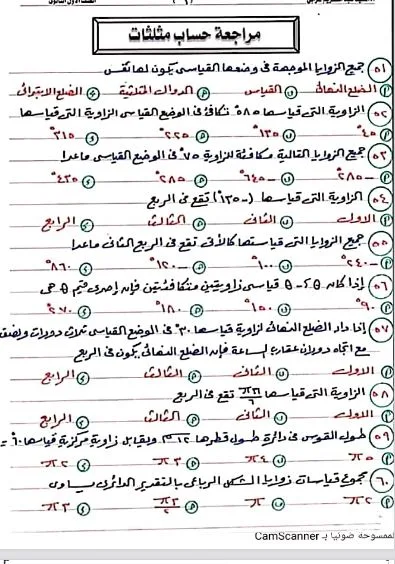 مراجعة حساب مثلثات
٥١ جميع الزوايا الموجهة فى وضعها القياسى يكون لها نفس
أ الضلع النهائى ب القياس ج الدوال المثلثية د الضلع الابتدائى
٥٢ الزاوية التى قياسها ٥٨٥° تكافئ فى الوضع القياسى الزاوية التى قياسها
أ ٤٥° ب ١٣٥° ج ٢٢٥° د ٣١٥°
٥٣ جميع الزوايا التالية مكافئة للزاوية ٧٥° فى الوضع القياسى ماعدا
أ -٢٨٥° ب -٦٤٥° ج ٢٨٥° د ٤٣٥°
٥٤ الزاوية التى قياسها (-١٣٥°) تقع فى الربع
أ الاول ب الثانى ج الثالث د الرابع
٥٥ جميع الزوايا التى قياستها كالأتى تقع فى الربع الثانى ماعدا
أ -٢٤٠° ب ١٠٠° ج -١٢٠° د ٨٦٠°
٥٦ إذا كان θ ، -θ قياسى زاويتين متكافئتين فإن إحدى قيم θ هى
أ ٩٠° ب ١٥٠° ج ١٨٠° د ٢٧٠°
٥٧ إذا دار الضلع النهائى لزاوية قياسها ٣٠° فى الوضع القياسى ثلاث دورات ونصف
مع اتجاه دوران عقارب الساعة فإن الضلع النهائى يكون فى الربع
أ الاول ب الثانى ج الثالث د الرابع
٥٨ الزاوية التى قياسها تقع فى الربع
أ الاول ب الثانى ج الثالث د الرابع
٥٩ طول القوس فى دائرة طول قطرها ١٢سم ويقابل زاوية مركزية قياسها ٦٠°
أ π٥ ب π٤ ج π٣ د π٢
٦٠ مجموع قياسات زوايا الشكل الرباعى بالتقدير الدائرى يساوى
أ π٢ ب π ج π٣/٢ د π٣
الممسوحة ضوئيا بـ CamScanner